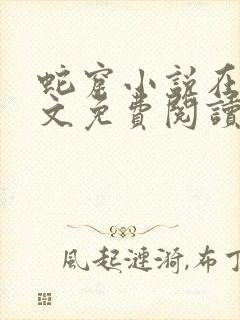 蛇窟小説在
文免費閱讀
風起漣漪,布丁